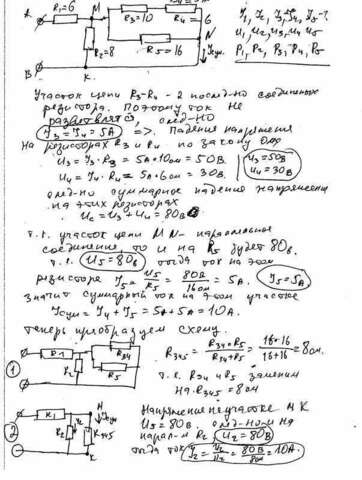 R₁=6 M R₃=10 R₄=6
A
R₂=8 N
R₅=16 Iсум
B
K
P₁, P₂, P₃, P₄, P₅
Участок цепи R₃-R₄ - 2 послед-но соединенных
резистора. Поэтому ток не
разветвлятся, след-но
I₃=I₄=5A => Падения напряжения
на резисторах R₃ и R₄ по закону Ома
U₃=I₃·R₃=5A·10ом=50В U₃=50В
U₄=I₄·R₄=5A·6ом=30В. U₄=30В
след-но суммарное падение напряжения
на этих резисторах
Uс=U₃+U₄=80В
т.к. участок цепи MN- параллельное
соединение, то и на R₅ будет 80в.
т.е. U₅=80В тогда ток на этом
резисторе I₅=U₅/R₅=80В/16ом=5А. I₅=5А
значит суммарный ток на этом участке
Iсум=I₄+I₅=5А+5А=10А.
теперь преобразуем схему.
R₃₄₅=R₃₄·R₅/R₃₄+R₅=16·16/16+16=8ом.
1 R₁ R₂ R₃₄ R₅
т.е. R₃₄ и R₅ заменим
на R₃₄₅=8ом
2 R₁ N Iсум
R₂ I₂ R₃₄₅
K
Напряжение на участке MK
U₅=80В. след-но и на
парал-м R₂ U₂=80В
тогда ток I₂=U₂/R₂=80В/8ом=10А.